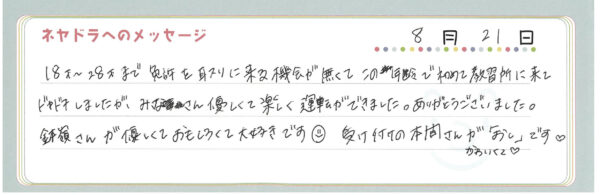 ネヤドラへのメッセージ
8月21日
18才〜28才まで免許を取りに来る機会が無くてこの年齢で初めて教習所に来て
ドキドキしましたが、みなさん優しくて楽しく運転ができました。ありがとうございました。
さんが優しくておもしろくて大好きです☺ 受け付けの本間さんが「おし」です♡
かわいくて♡